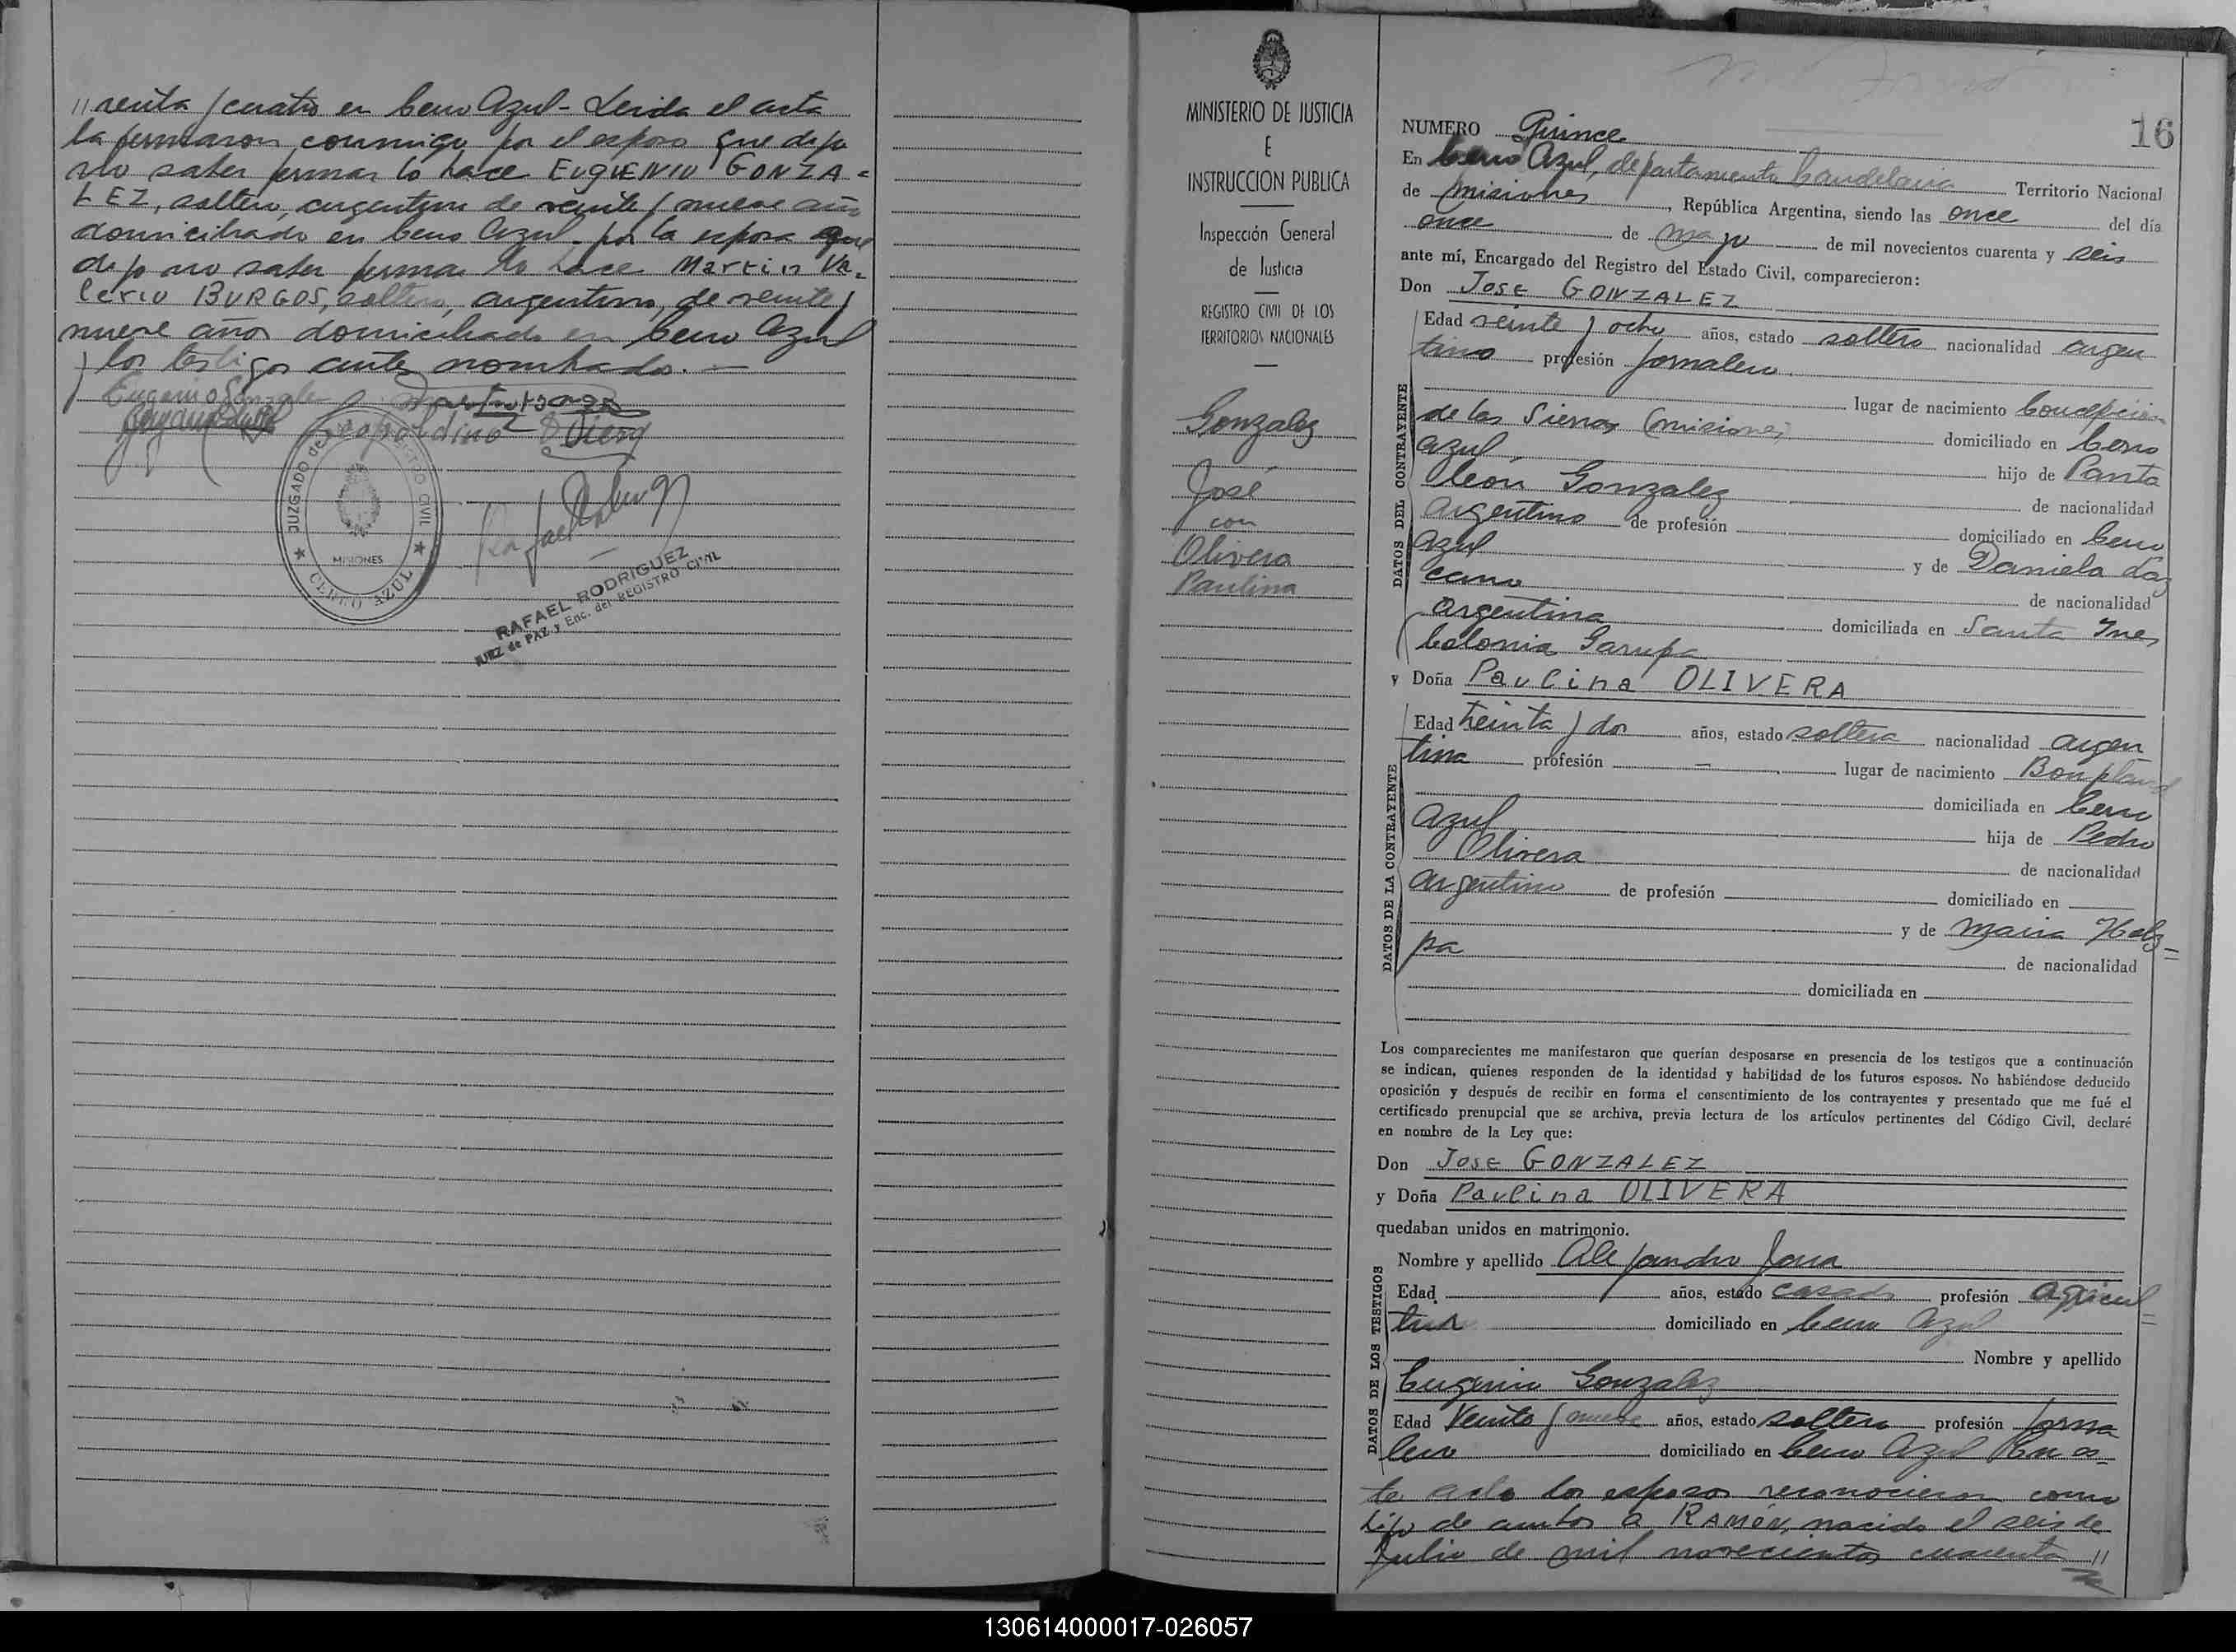 // renta y cuatro en Cerro Azul - Leida el acta
la firmaron conmigo por el esposo que dijo
no saber firmar lo hace EUGENIO GONZA=
LEZ, soltero, argentino de veinte y nueve años
domiciliado en Cerro Azul por la esposa que
dijo no saber firmar lo hace Martin Va=
lerio BURGOS, soltero, argentino, de veinte y
nueve años domiciliado en Cerro Azul
y los testigos antes nombrados. -
Eugenio Gonzalez
JUZGADO de
CIVIL
MISIONES
CERRO AZUL
RAFAEL RODRIGUEZ
JUEZ de PAZ y Enc. del REGISTRO CIVIL
MINISTERIO DE JUSTICIA
E
INSTRUCCION PUBLICA
Inspección General
de Justicia
REGISTRO CIVIL DE LOS
TERRITORIOS NACIONALES
Gonzalez
José
con
Olivera
Paulina
16
NUMERO Quince
En Cerro Azul, departamento Candelaria Territorio Nacional
de Misiones, República Argentina, siendo las once del día
once de mayo de mil novecientos cuarenta y seis
ante mí, Encargado del Registro del Estado Civil, comparecieron:
Don JOSE GONZALEZ
DATOS DEL CONTRAYENTE
Edad veinte y ocho años, estado soltero nacionalidad argen
tino profesión jornalero.
lugar de nacimiento Concepcion
de las Sierras (Misiones) domiciliado en Cerro
Azul hijo de Panta
león Gonzalez de nacionalidad
Argentino de profesión domiciliado en Cerro
Azul y de Daniela Laz
cano de nacionalidad
argentina domiciliada en Santa Ines
Colonia Garupa
y Doña Paulina OLIVERA
DATOS DE LA CONTRAYENTE
Edad treinta y dos años, estado soltera nacionalidad argen
tina profesión - lugar de nacimiento Bonpland
domiciliada en Cerro
Azul hija de Pedro
Olivera de nacionalidad
argentino de profesión domiciliado en
y de Maria
pa de nacionalidad
domiciliada en
Los comparecientes me manifestaron que querían desposarse en presencia de los testigos que a continuación
se indican, quienes responden de la identidad y habilidad de los futuros esposos. No habiéndose deducido
oposición y después de recibir en forma el consentimiento de los contrayentes y presentado que me fué el
certificado prenupcial que se archiva, previa lectura de los artículos pertinentes del Código Civil, declaré
en nombre de la Ley que:
Don JOSE GONZALEZ
y Doña Paulina OLIVERA
quedaban unidos en matrimonio.
DATOS DE LOS TESTIGOS
Nombre y apellido Alejandro Jara
Edad años, estado casado profesión agricul=
tor domiciliado en Cerro Azul
Nombre y apellido
Eugenio Gonzalez
Edad Veinte y nueve años, estado soltero profesión jorna
lero domiciliado en Cerro Azul En es=
te acto los esposos reconocieron como
hijo de ambos a RAMÓN, nacido el seis de
Julio de mil novecientos cuarenta //
130614000017-026057